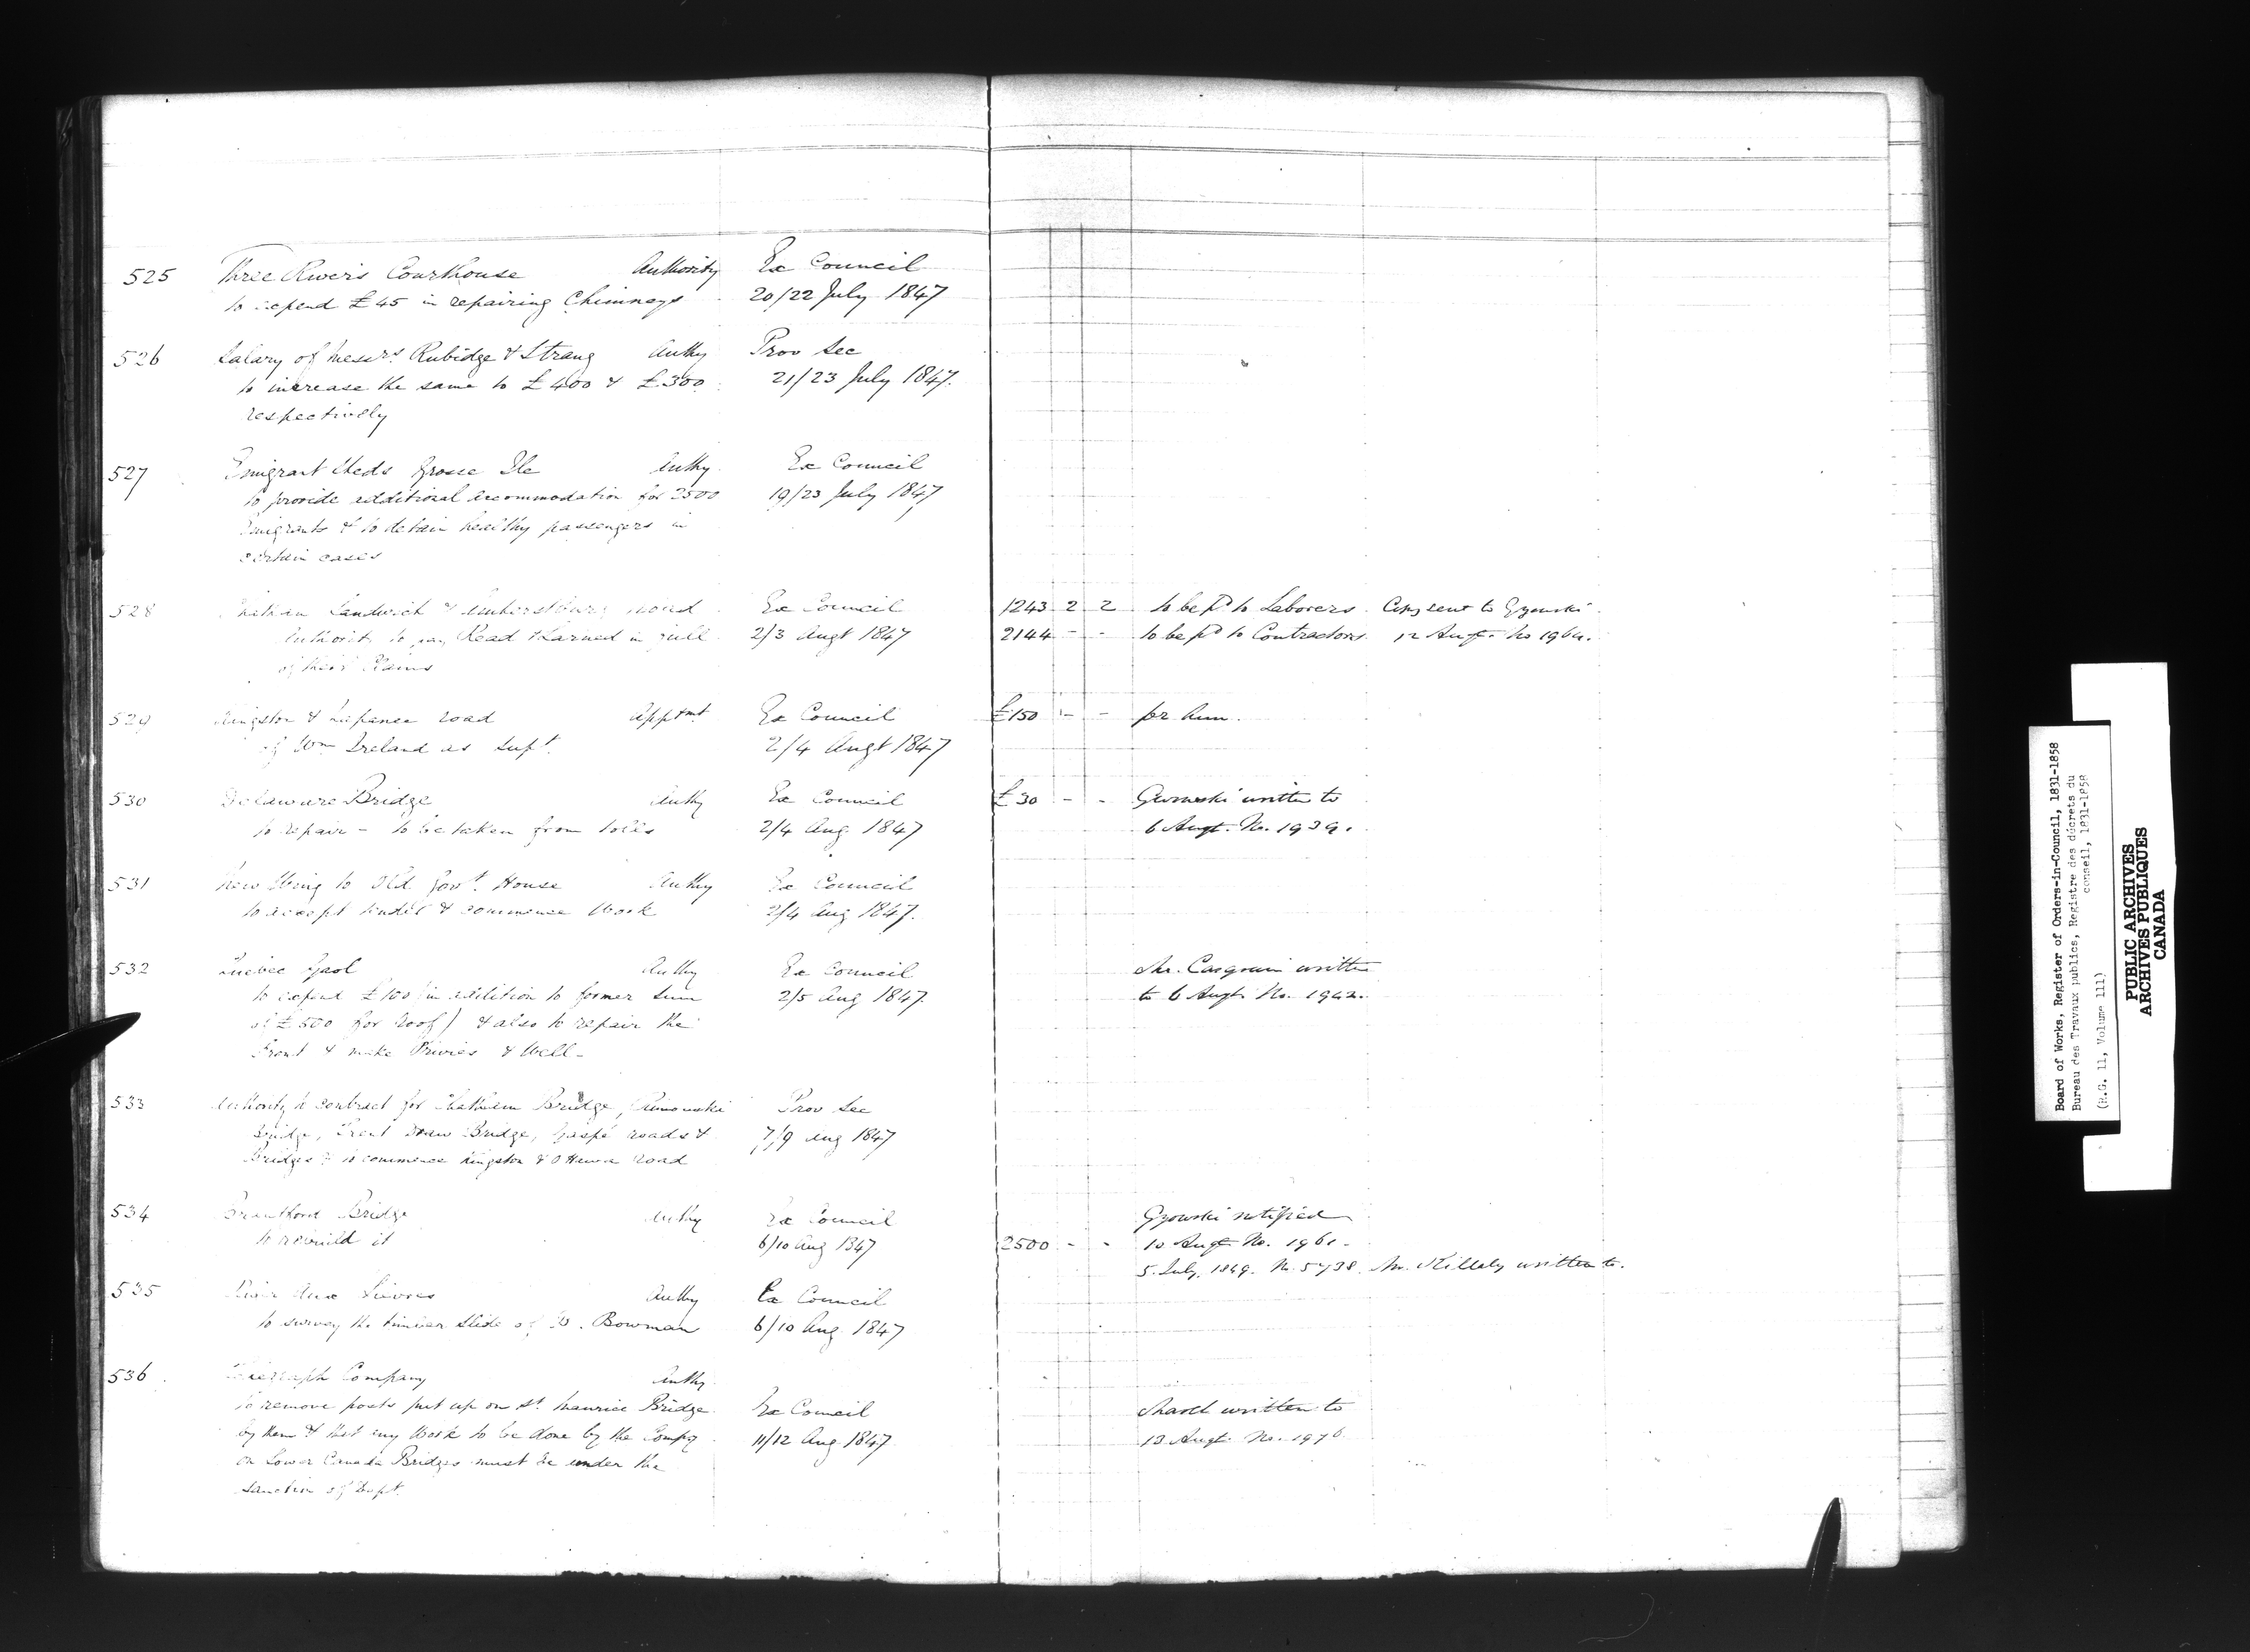 525 Three Rivers Courthouse Authority Ex Council
to expend £45 in repairing Chimneys 20/22 July 1847
526 Salary of Messrs Rubidge & Strang Authy Prov Sec
to increase the same to £400 & £300 21/23 July 1847.
respectively
527 Emigrant Sheds Grosse Ile Authy Ex Council
to provide additional accommodation for 2500 19/23 July 1847
Emigrants & to detain healthy passengers in
certain cases
528 Chatham Sandwich & Amherstburg road Ex Council 1243 2 2 to be pd to Laborers. Copy sent to Gzowski
Authority to pay Read & Larned in full 2/3 Augt 1847 2144 - - to be pd to Contractors 12 Augt. No 1964.
of their Claims
529 Kingston & Napanee road Apptmt Ex Council £150 - - per Ann.
of Wm Ireland as Supt. 2/4 Augt 1847
530 Delaware Bridge Authy Ex Council £30 - - Gzowski written to
to repair - to be taken from tolls 2/4 Aug 1847 6 Augt. No. 1939.
531 New Wing to Old Govt. House Authy Ex Council
to accept tender & commence Work 2/4 Aug 1847.
532 Quebec Gaol Authy Ex Council Mr. Casgrain written
to expend £100 (in addition to former sum 2/5 Aug 1847. to 6 Augt. No. 1942.
of £500 for roof) & also to repair the
Front & make Privies & Well -
533 Authority to contract for Chatham Bridge, Rimouski Prov Sec
Bridge, Trent Draw Bridge, Gaspé roads & 7/9 Aug 1847
Bridges & to commence Kingston & Ottawa Road
534 Brantford Bridge Authy Ex Council Gzowski notified
to rebuild it 6/10 Aug 1847 2500 - - 10 Augt No. 1961.
5. July, 1849. No. 5738. Mr. Killaly written to.
535 River Aux Lievres Authy Ex Council
to survey the timber slide of Bowman 6/10 Aug 1847
536 Telegraph Company Authy
to remove posts put up on St. Maurice Bridge Ex Council written to
by them & that any Work to be done by the Compy 11/12 Aug 1847 13 Augt. No. 1976
on Lower Canada Bridges must be under the
sanction of Dept.
Board of Works, Register of Orders-in-Council, 1831-1858
Bureau des Travaux publics, Registre des décrets du
conseil, 1831-1858
(R.G. 11, Volume 111)
PUBLIC ARCHIVES
ARCHIVES PUBLIQUES
CANADA